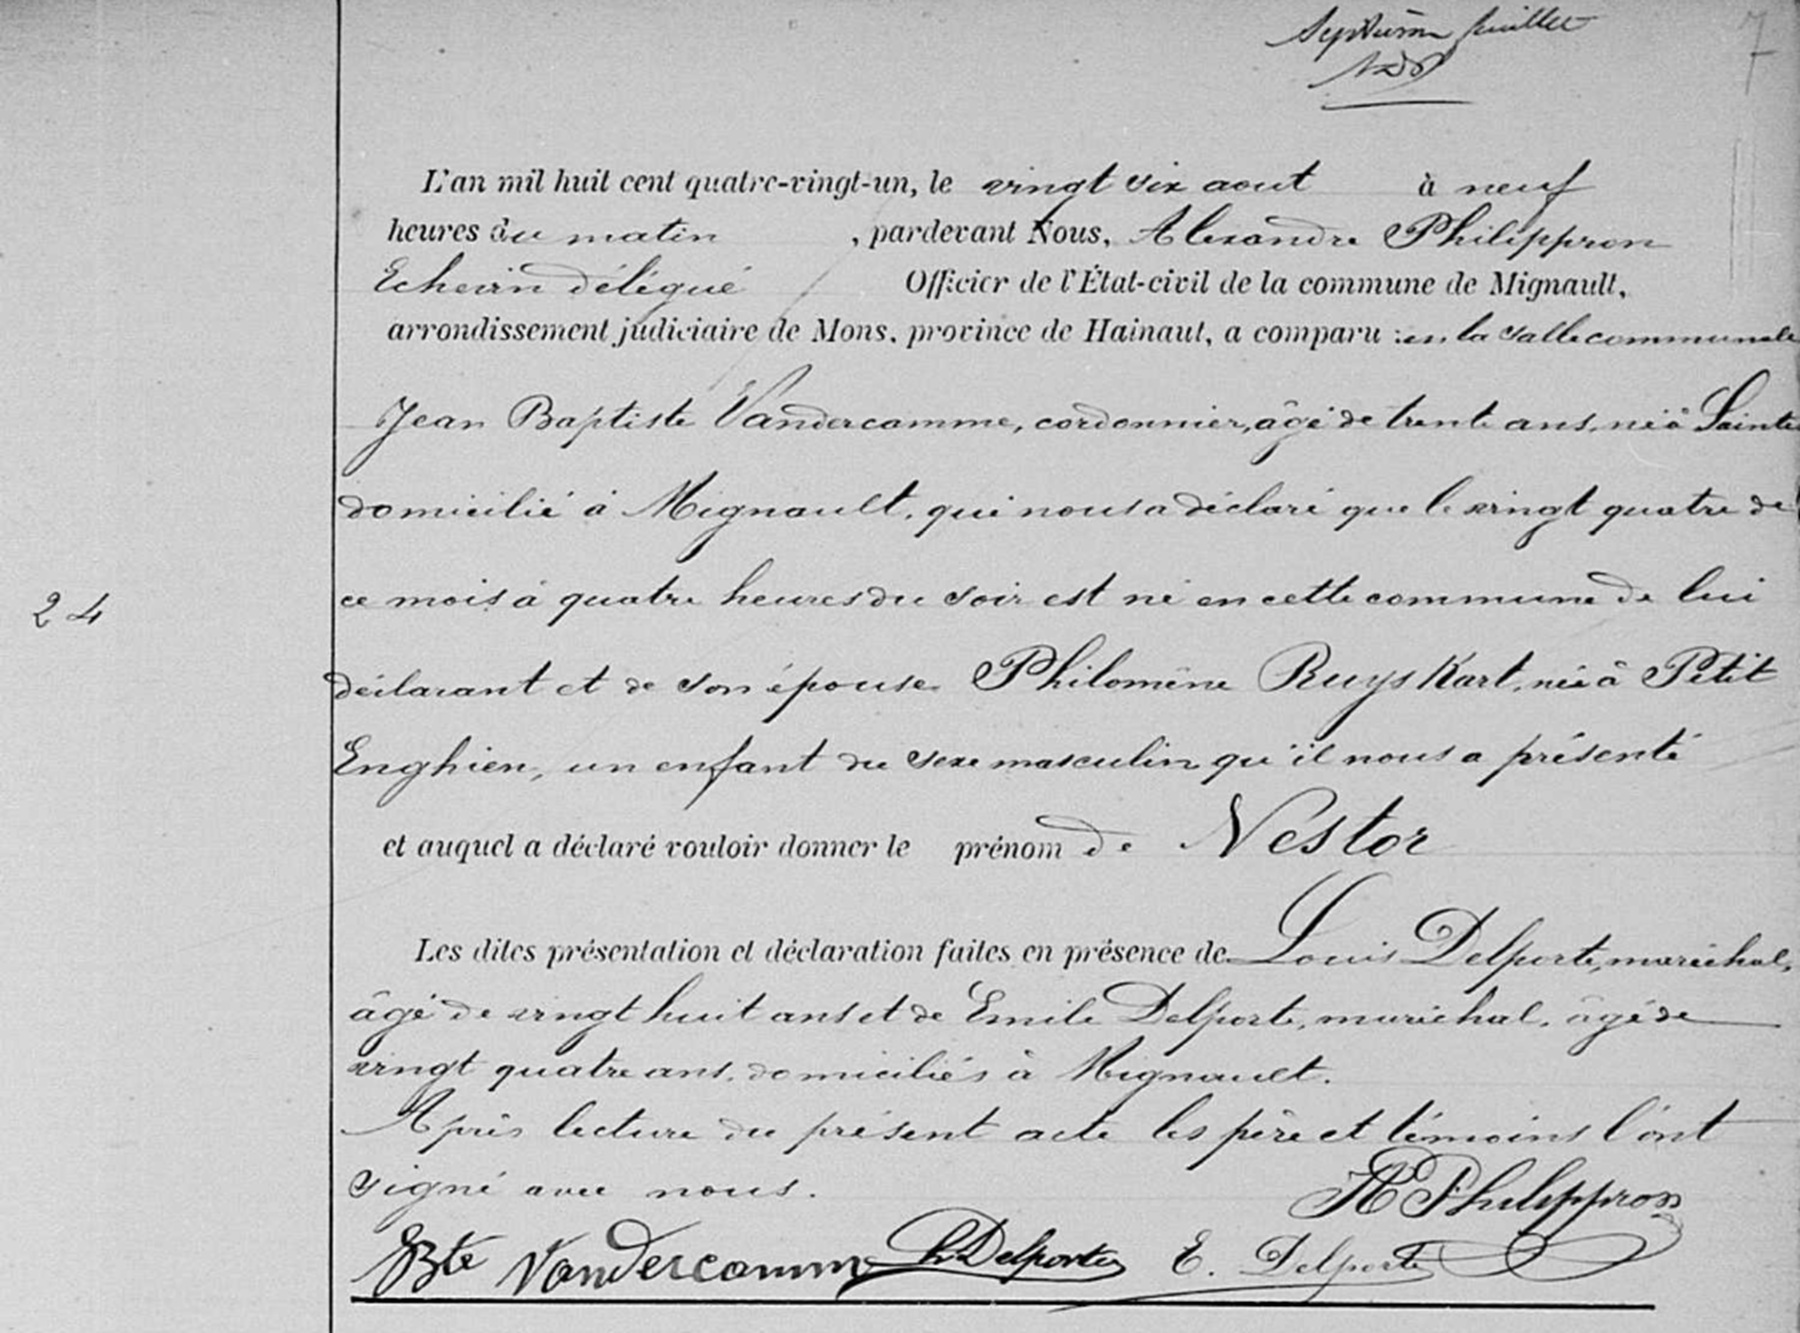 Septième feuillet
7
L'an mil huit cent quatre-vingt-un, le vingt six aout à neuf
heures du matin , pardevant Nous, Alexandre Philippron
Echevin délégué Officier de l'État-civil de la commune de Mignault,
arrondissement judiciaire de Mons, province de Hainaut, a comparu : en la salle communale
Jean Baptiste Vandercamme, cordonnier, âgé de trente ans, né à Saintes
domicilié à Mignault, qui nous a déclaré que le vingt quatre de
24
ce mois à quatre heures du soir est né en cette commune de lui
déclarant et de son épouse Philomène Ruyskart, née à Petit
Enghien, un enfant du sexe masculin qu'il nous a présenté
et auquel a déclaré vouloir donner le prénom de Nestor
Les dites présentation et déclaration faites en présence de Louis Delporte, maréchal,
âgé de vingt huit ans et de Emile Delporte, maréchal, âgé de
vingt quatre ans, domiciliés à Mignault.
Après lecture du présent acte les père et témoins l'ont
signé avec nous.
A Philippron
JBte Vandercamme L Delporte E. Delporte